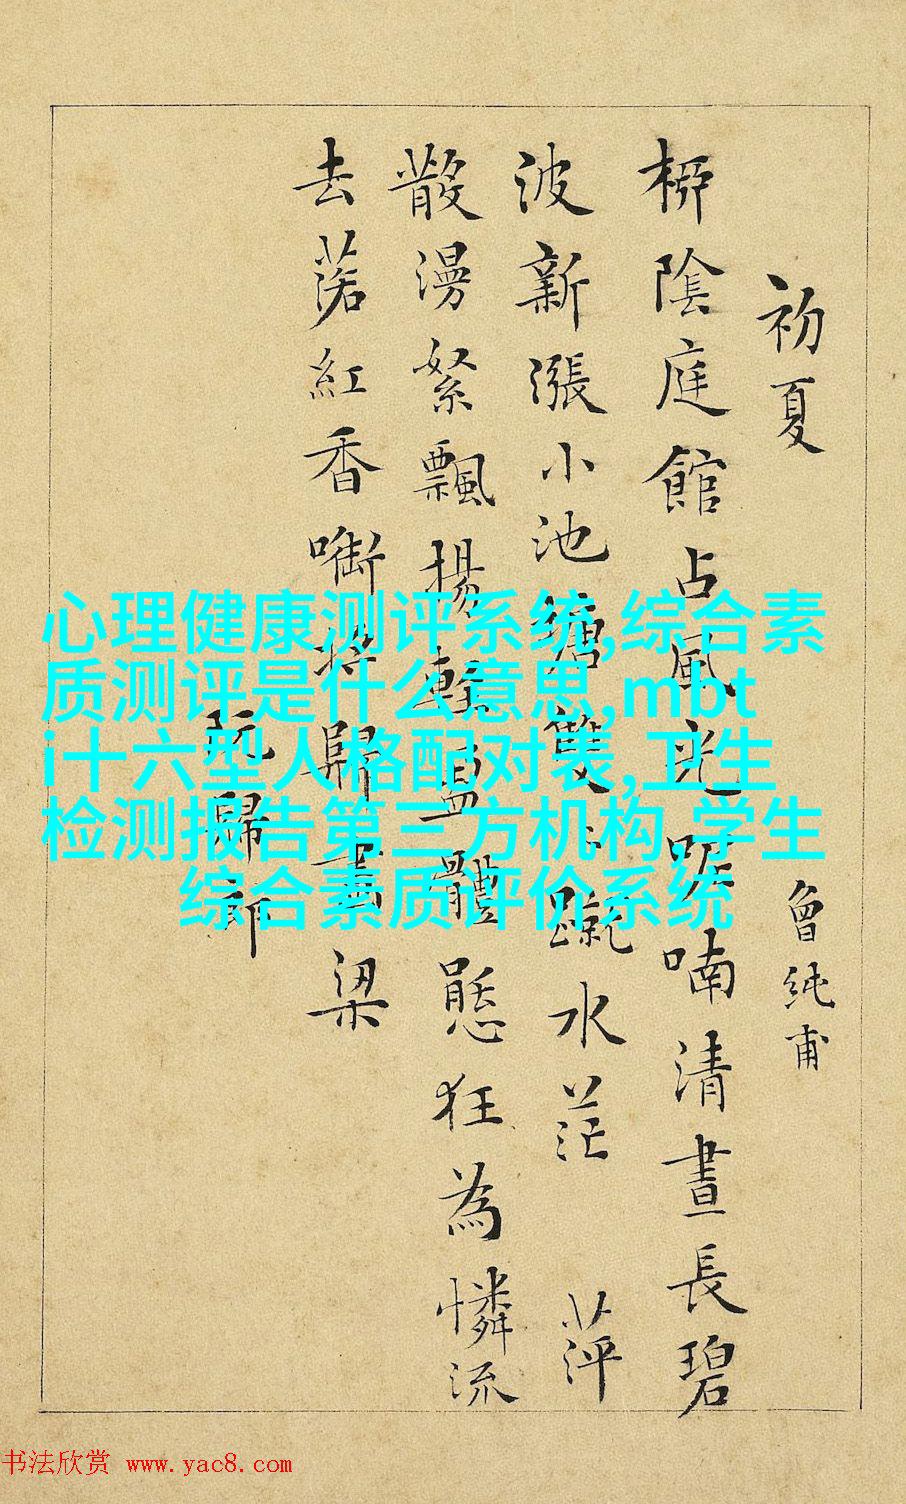 初夏 曾純甫
桺陰庭館占風光呢喃清晝長碧
波新漲小池塘雙〻蹴水茫 萍
散漫絮飄揚輕盈體態狂為憐流
去落紅香啣將歸畫梁
阮歸郎
心理健康测评系统,综合素
质测评是什么意思,mbt
i十六型人格配对表,卫生
检测报告第三方机构,学生
综合素质评价系统
书法欣赏 www.yac8.com